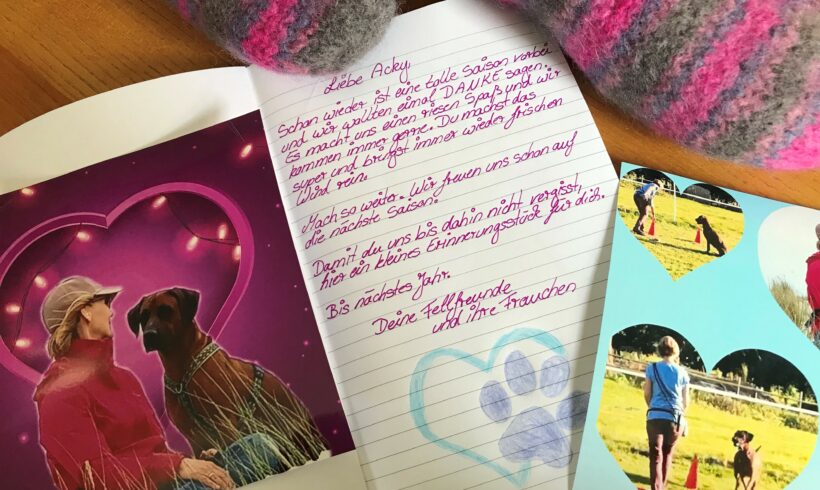 Liebe Acky,
Schon wieder ist eine tolle Saison vorbei
und wir wollten einmal DANKE sagen.
Es macht uns einen riesen Spaß und wir
kommen immer gerne. Du machst das
super und bringst immer wieder frischen
Wind rein.
Mach so weiter. Wir freuen uns schon auf
die nächste Saison.
Damit du uns bis dahin nicht vergisst,
hier ein kleines Erinnerungsstück für dich.
Bis nächstes Jahr.
Deine Fellfreunde
und ihre Frauchen